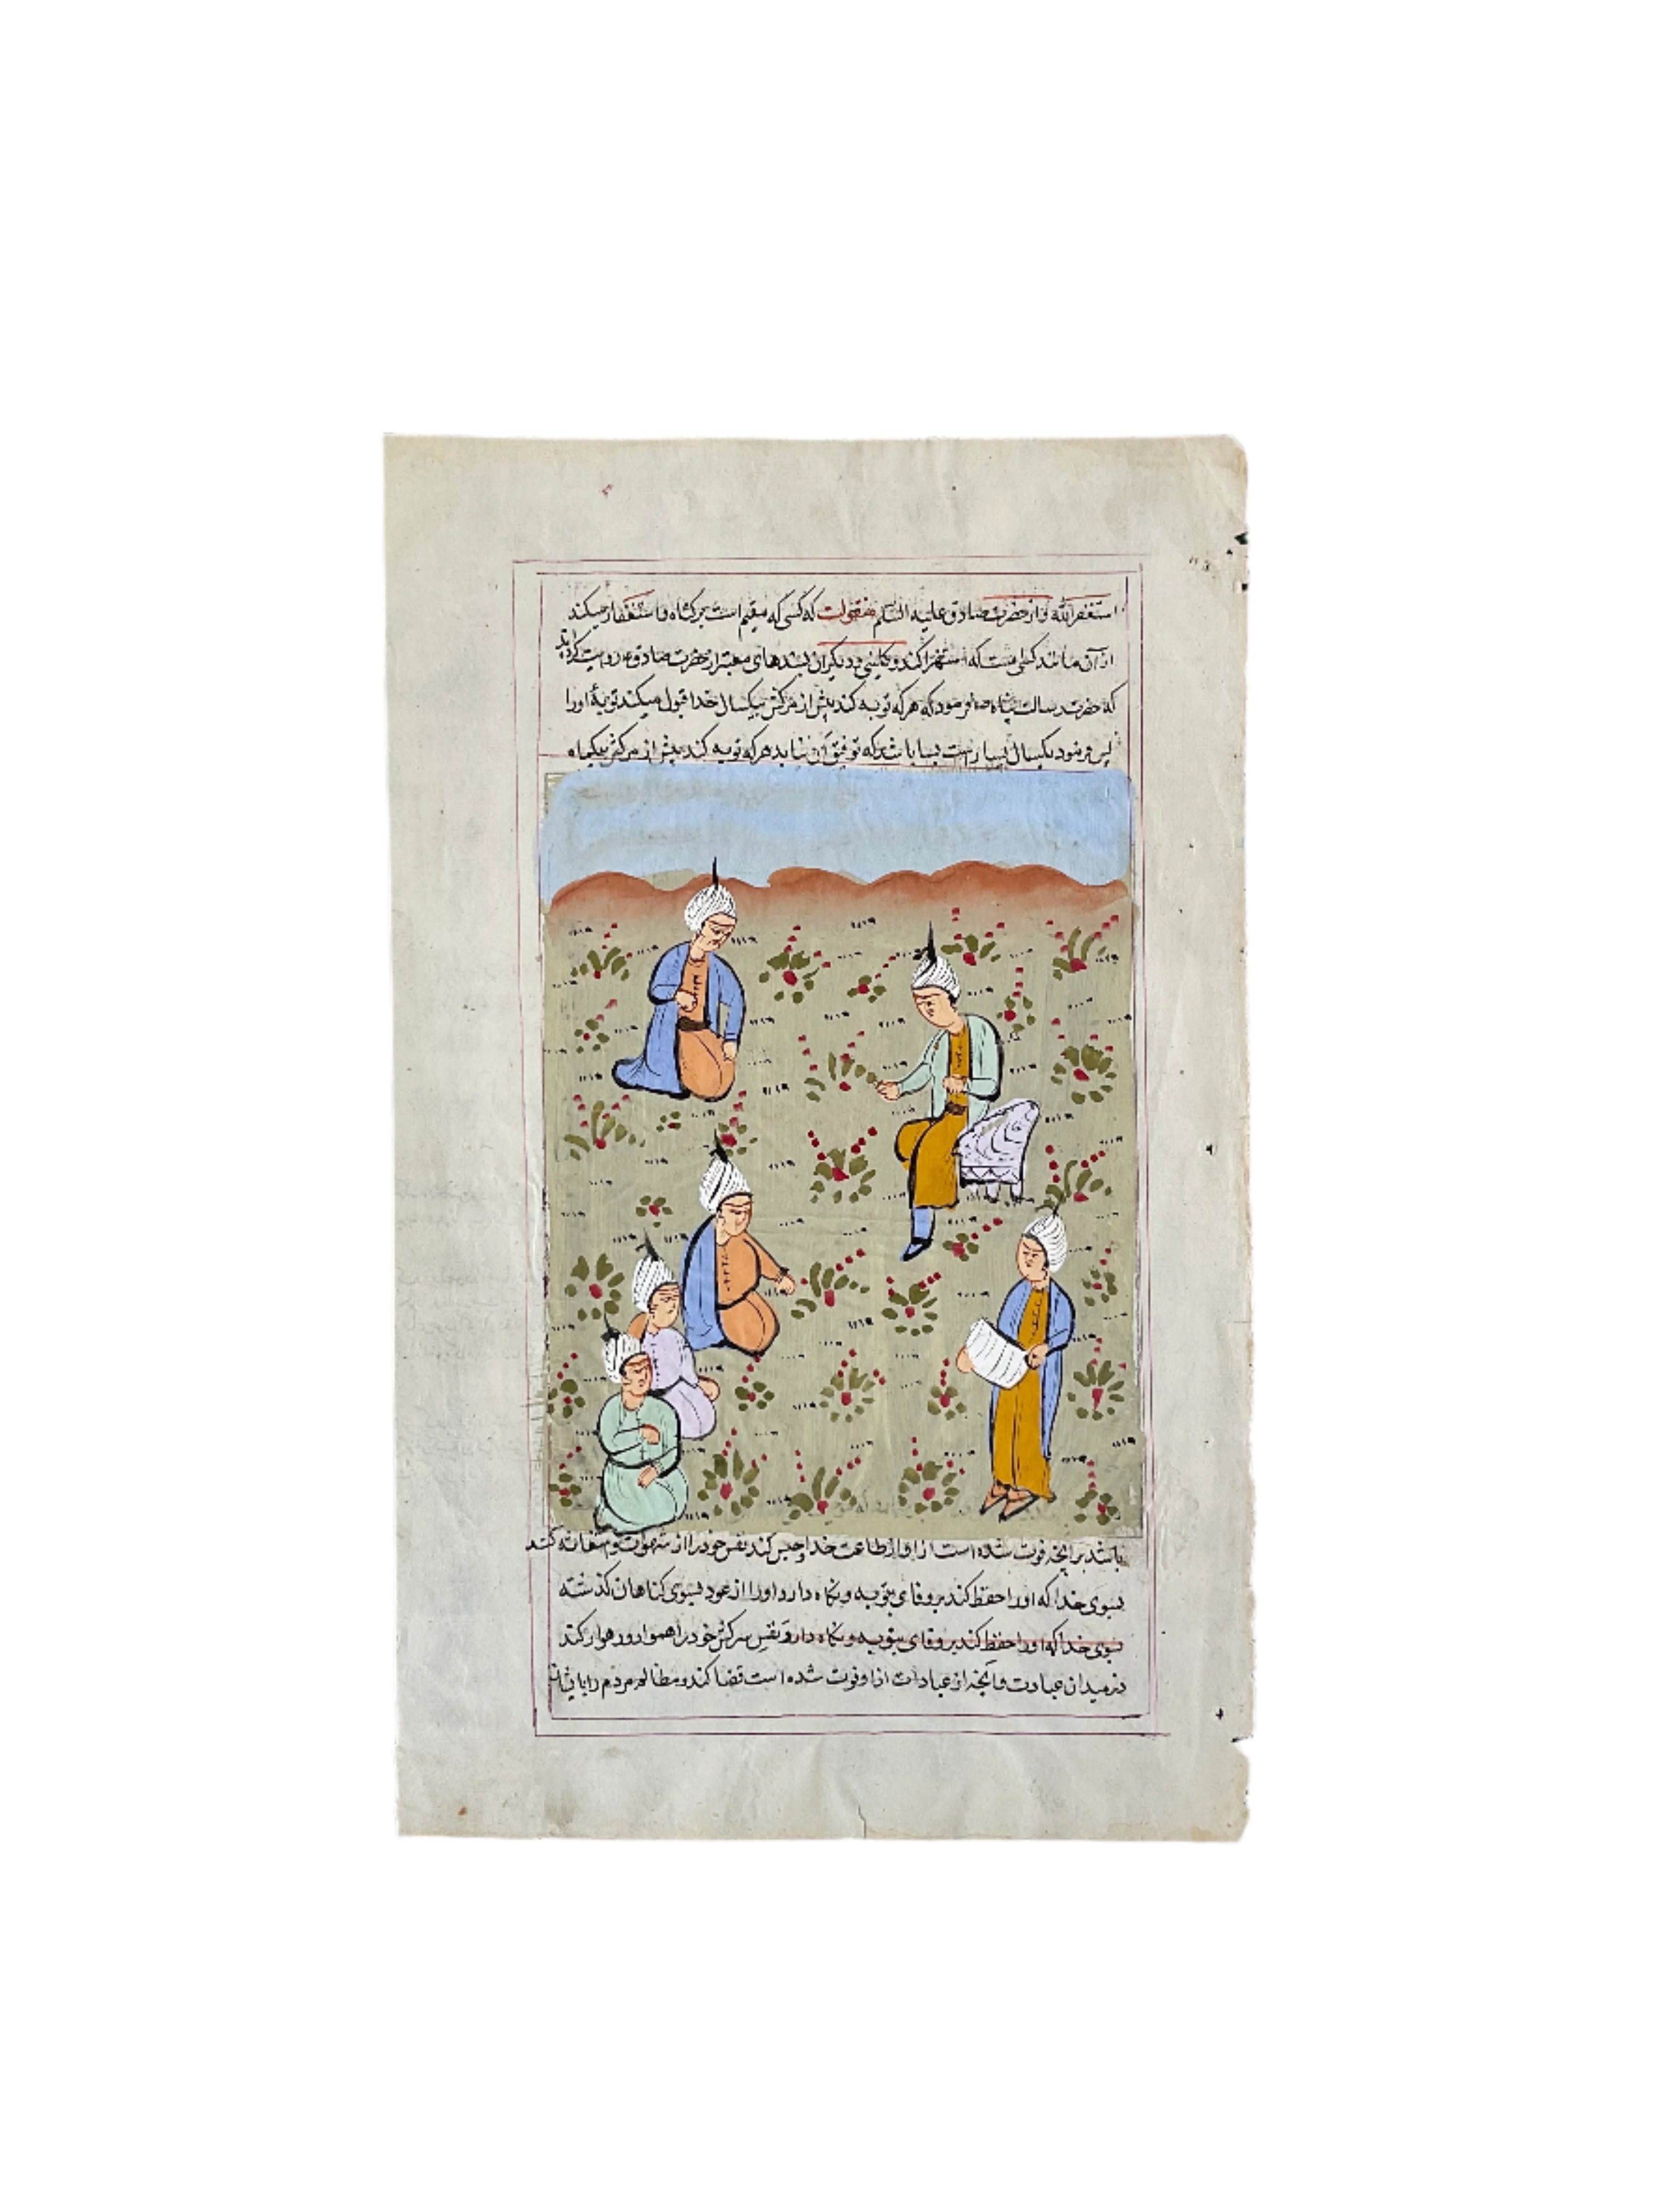 استغفرالله و از حضرت صادق علیه السلم منقولت که کسی که مقیم است بر گناه و استغفار میکند
از آن مانند کسی است که استهزا کند و کلینی و دیگران بسندهای معتبر از حضرت صادق ع روایت کرده‌اند
که حضرت رسالت پناه ص فرمود که هر که توبه کند پیش از مرکش بیکسال خدا قبول میکند توبهٔ اورا
پس فرمود یکسال بسیار است بسا باشد که توفیق آن نیابد هر که توبه کند پیش از مرکش بیکماه
باشد بر آنچه فوت شده است از او از طاعت خدا و حبس کند نفس خود را از شهوات و استغاثه کند
بسوی خدا که اورا حفظ کند بر وفای بتوبه و نگاه دارد اورا از عود بسوی کناهان کذشته
بسوی خدا که اورا حفظ کند بر وفای بتوبه و نگاه دارد و نفس سرکش خود را هموار و رهوار کند
در میدان عبادت و آنچه از عبادات از او فوت شده است قضا کند و مظالم مردم را بایشان